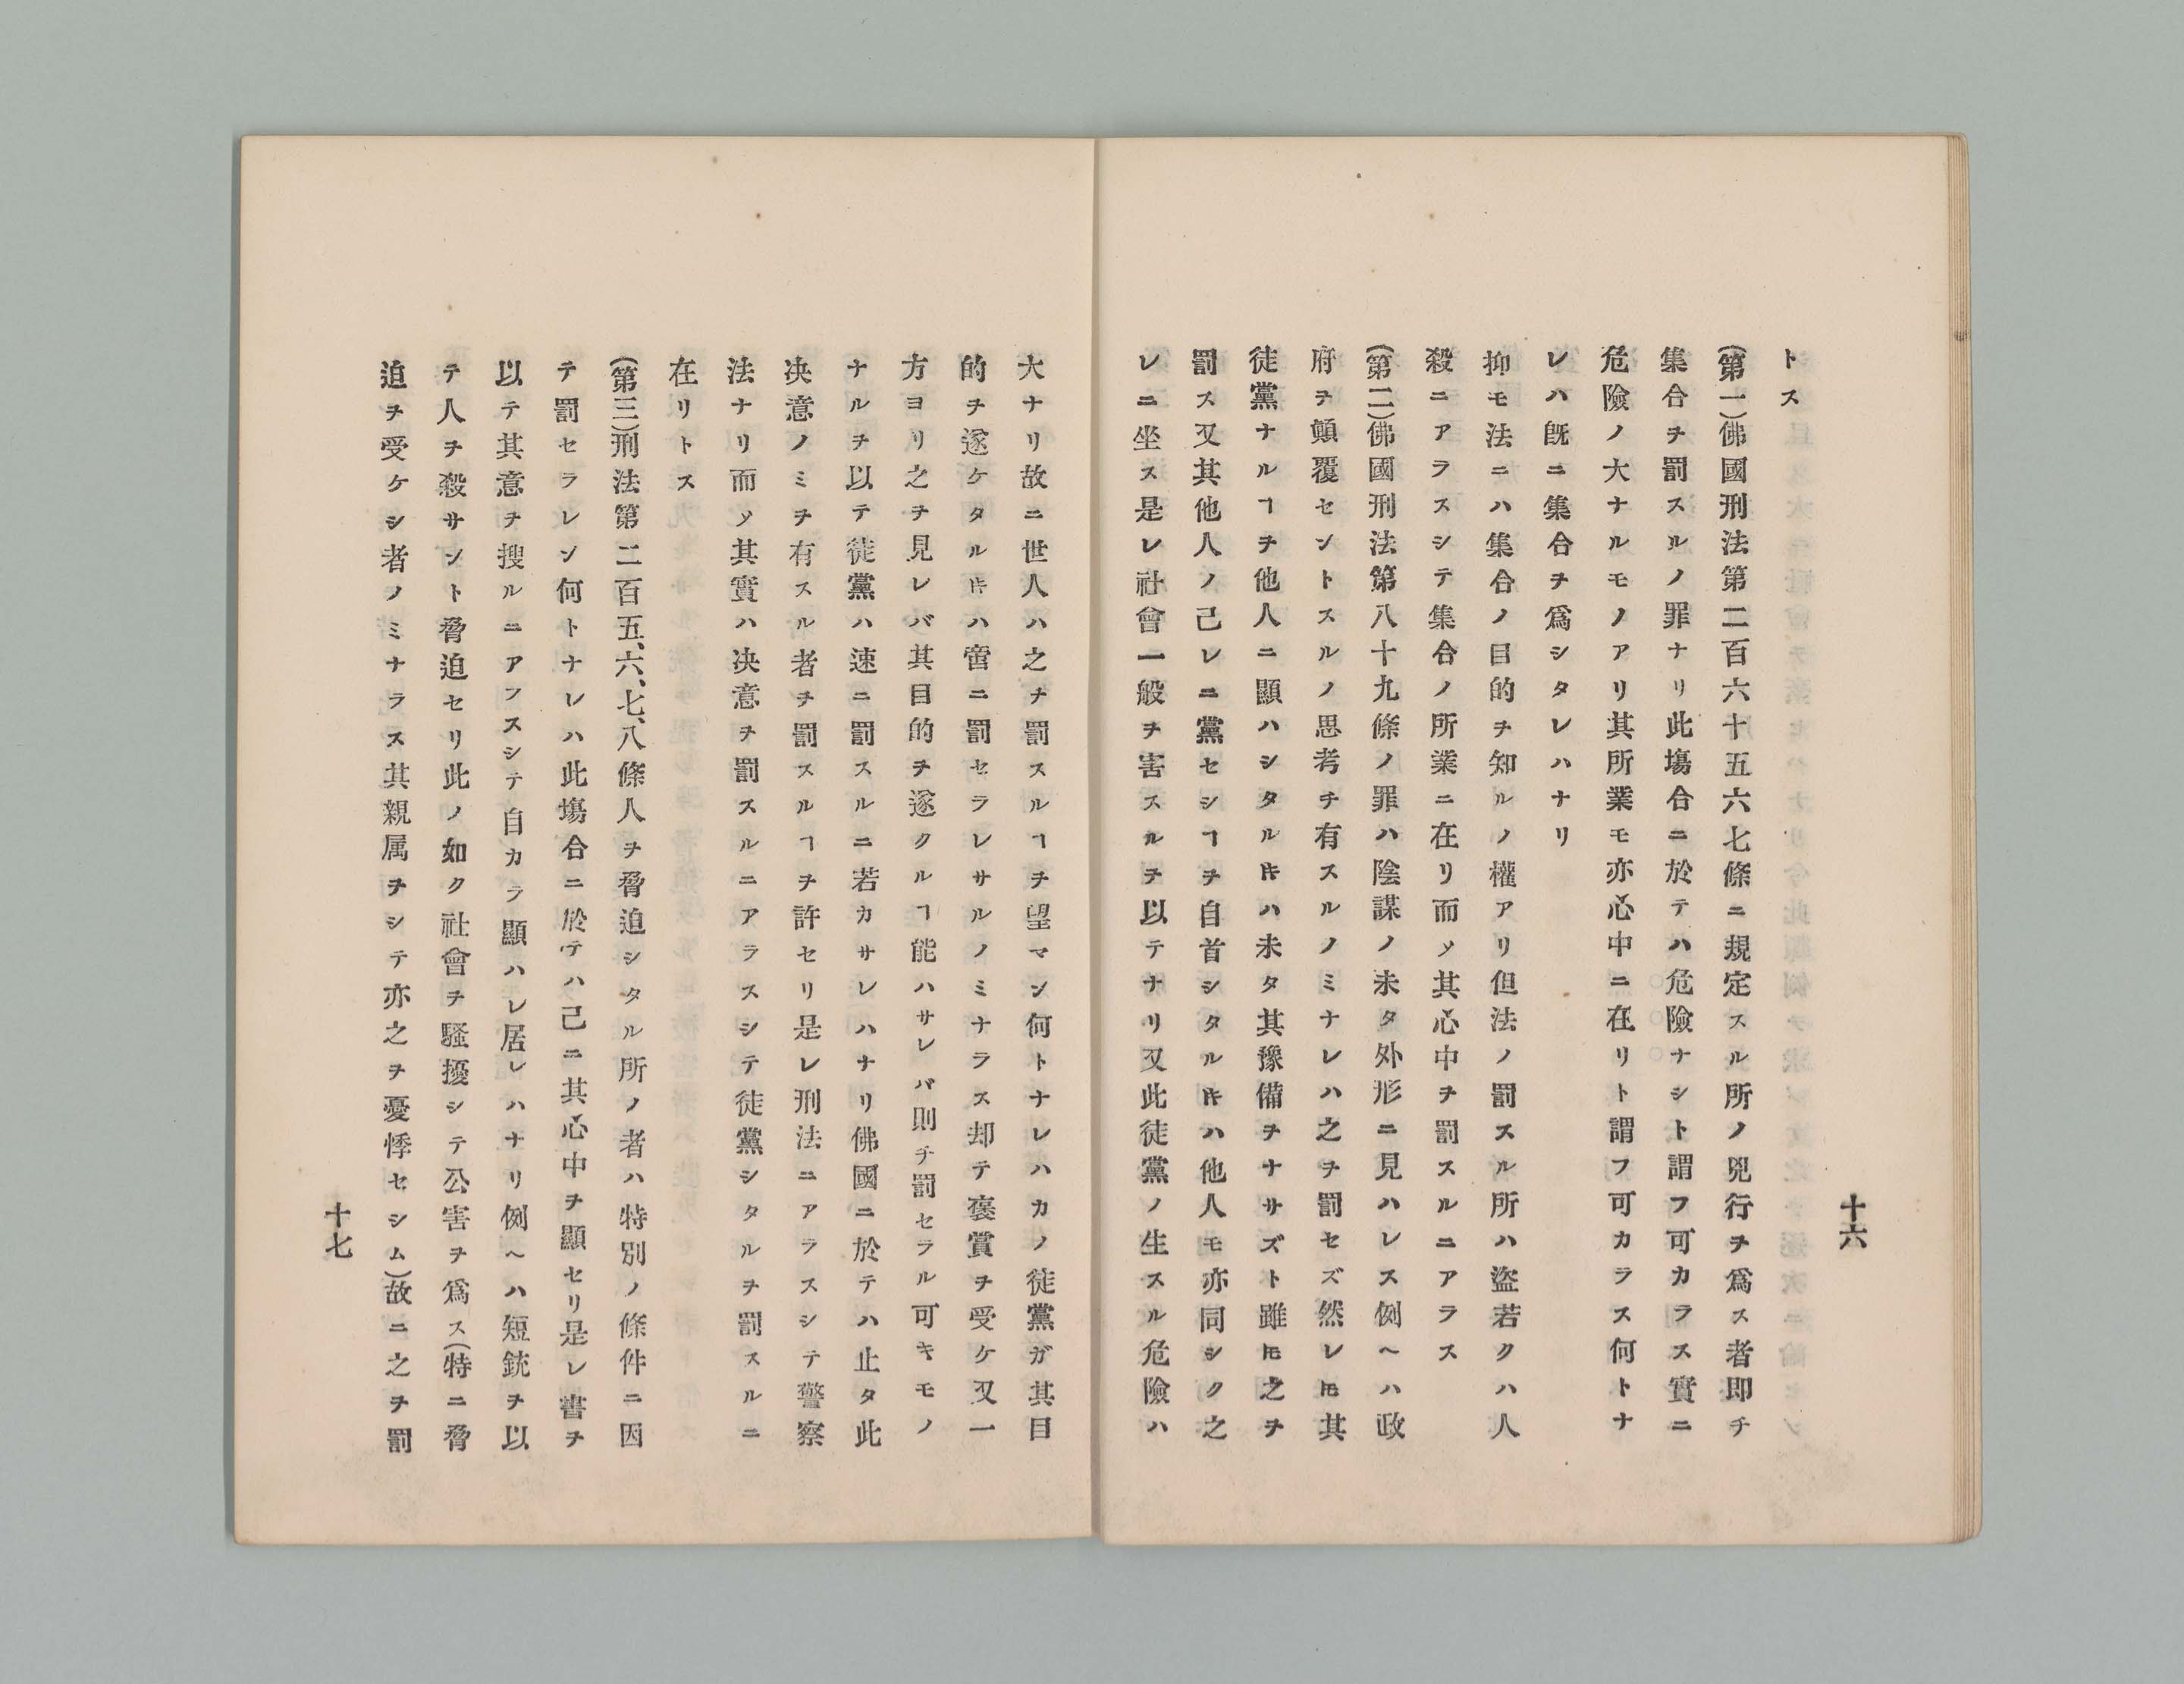 十六
トス
(第一)佛國刑法第二百六十五六七條ニ規定スル所ノ兇行ヲ爲ス者即チ
集合ヲ罰スルノ罪ナリ此塲合ニ於テハ危險ナシト謂フ可カラス實ニ
危險ノ大ナルモノアリ其所業モ亦心中ニ在リト謂フ可カラス何トナ
レハ既ニ集合ヲ爲シタレハナリ
抑モ法ニハ集合ノ目的ヲ知ルノ權アリ但法ノ罰スル所ハ盜若クハ人
殺ニアラスシテ集合ノ所業ニ在リ而〆其心中ヲ罰スルニアラス
(第二)佛國刑法第八十九條ノ罪ハ陰謀ノ未タ外形ニ見ハレス例ヘハ政
府ヲ顚覆セントスルノ思考ヲ有スルノミナレハ之ヲ罰セズ然レ𪜈其
徒黨ナルヿヲ他人ニ顯ハシタルキハ未タ其豫備ヲナサズト雖𪜈之ヲ
罰ス又其他人ノ己レニ黨セシヿヲ自首シタルキハ他人モ亦同シク之
レニ坐ス是レ社會一般ヲ害スルヲ以テナリ又此徒黨ノ生スル危險ハ
大ナリ故ニ世人ハ之ヲ罰スルヿヲ望マン何トナレハカノ徒黨ガ其目
的ヲ遂ケタルキハ啻ニ罰セラレサルノミナラス却テ褒賞ヲ受ケ又一
方ヨリ之ヲ見レバ其目的ヲ遂クルヿ能ハサレバ則チ罰セラル可キモノ
ナルヲ以テ徒黨ハ速ニ罰スルニ若カサレハナリ佛國ニ於テハ止タ此
决意ノミヲ有スル者ヲ罰スルヿヲ許セリ是レ刑法ニアラスシテ警察
法ナリ而〆其實ハ决意ヲ罰スルニアラスシテ徒黨シタルヲ罰スルニ
在リトス
(第三)刑法第二百五、六、七、八條人ヲ脅迫シタル所ノ者ハ特別ノ條件ニ因
テ罰セラレン何トナレハ此塲合ニ於テハ己ニ其心中ヲ顯セリ是レ書ヲ
以テ其意ヲ搜ルニアラスシテ自カラ顯ハレ居レハナリ例ヘハ短銃ヲ以
テ人ヲ殺サント脅迫セリ此ノ如ク社會ヲ騷擾シテ公害ヲ爲ス(特ニ脅
迫ヲ受ケシ者ノミナラス其親属ヲシテ亦之ヲ憂悸セシム)故ニ之ヲ罰
十七